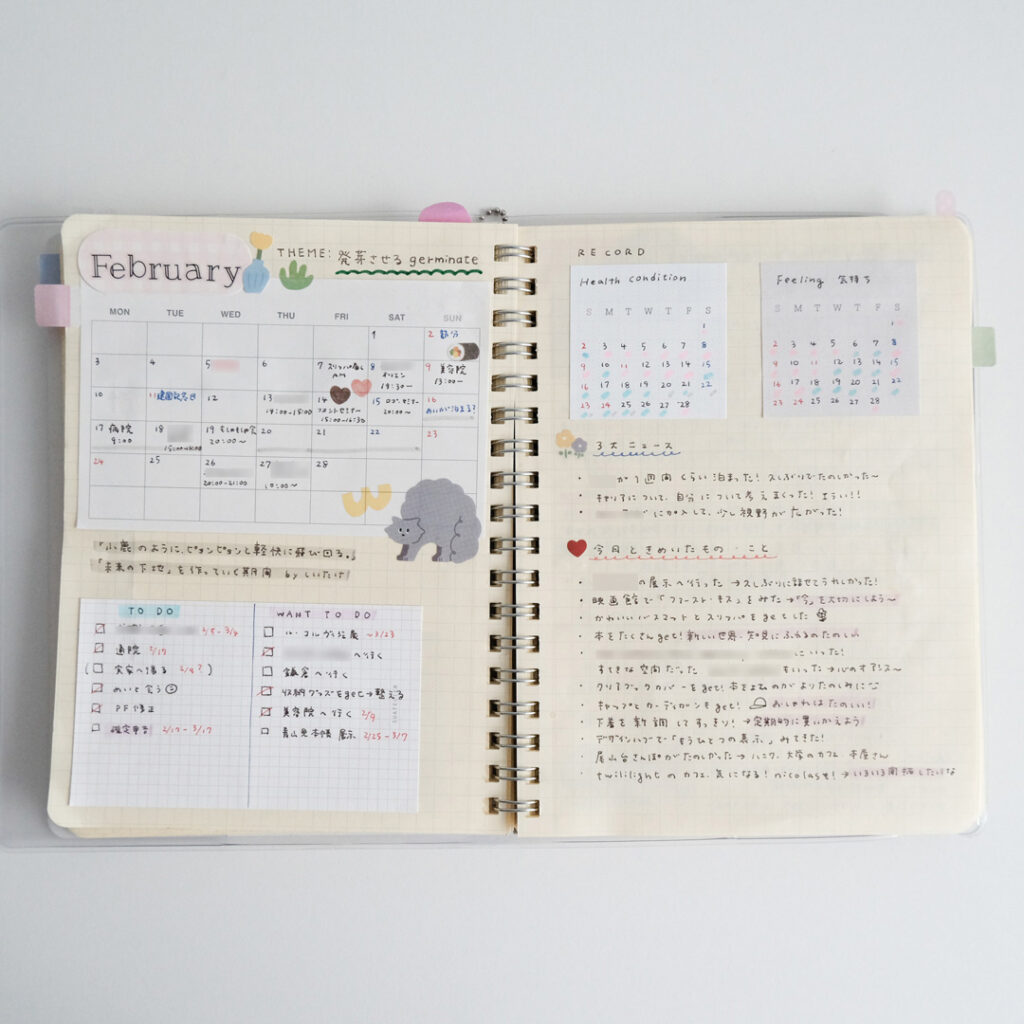 February
THEME: 発芽させる germinate
MON TUE WED THU FRI SAT SUN
1 2 節分
3 4 5 6 7 8 9 美容院
AM 19:30〜 13:00〜
10 11 建国記念日 12 13 14 15 16
14:00-15:00 フロントセミナー 20:00〜
15:00-16:30
17 病院 18 19 20 21 22 23
9:00 20:00〜
24 25 26 27 28
20:00-21:00
「小鹿のように、ピョンピョンと軽快に飛び回る。」
「未来の下地」を作っていく期間 by しいたけ
TO DO
2/5-3/4
通院 2/17
(実家へ帰る 2/4?)
めいと会う
PF修正
確定申告 2/17-3/17
WANT TO DO
ル・コルビュジエ展 〜3/23
へ行く
鎌倉へ行く
収納グッズをget→整える
美容院へ行く 2/9
青山見本帳 展示 2/25-3/7
RECORD
Health condition
S M T W T F S
1
2 3 4 5 6 7 8
9 10 11 12 13 14 15
16 17 18 19 20 21 22
23 24 25 26 27 28
Feeling 気持ち
S M T W T F S
1
2 3 4 5 6 7 8
9 10 11 12 13 14 15
16 17 18 19 20 21 22
23 24 25 26 27 28
3大ニュース
が1週間くらい泊まった! 久しぶりでたのしかった〜
キャリアについて、自分について考えまくった!
に加入して、少し視野が広がった!
今月ときめいたもの・こと
の展示へ行った→久しぶりに話せてうれしかった!
映画館で「ファースト・キス」をみた→「今」を大切にしよう〜
かわいいバスマットとスリッパをgetした
本をたくさんget! 新しい世界、知見にふれるのたのしい
にいった!
すてきな空間だった もいった→心のオアシス〜
クリアブックカバーをget! 本をよむのがよりたのしみに
キャップとカーディガンをget! おしゃれはたのしい!
下着を新調してすっきり!→定期的に買いかえよう
デザインハブで「もうひとつの表示」みてきた!
尾山台さんぽがたのしかった→ハニワ、大学のカフェ、本屋さん
twililightのカフェ、気になる! nicolasも!→いろいろ開拓したいな